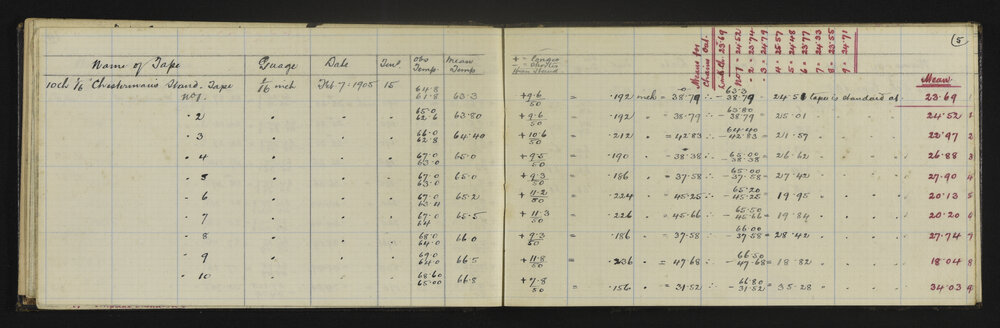 (5)
Means for
Chains Only.
Link Ch. 23.69
No 1 = 24.52
2 = 23.74
3 = 24.79
4 = 25.57
5 = 24.48
6 = 23.77
7 = 24.33
8 = 23.55
9 = 24.71
Name of Tape Guage Date Tenl Obs Temp. Mean Temp. + = Longer - = Shorter than Stand Mean
10ch 1/6 "Chesterman's Stand. Tape 1/16 inch Feb 7-1905 15 64.8 61.8 63.3 +9.6/50 = .192 inch = 38.79 ∴ 63.3 - 38.79 = 24.51 tape is standard at 23.69 1
No 1.
" 2 " " " 65.0 62.6 63.80 +9.6/50 = .192 " = 38.79 ∴ 63.80 - 38.79 = 25.01 " " " 24.52 2
" 3 " " " 66.0 62.8 64.40 +10.6/50 = .212 " = 42.83 ∴ 64.40 - 42.83 = 21.57 " " " 22.97 2
" 4 " " " 67.0 63.0 65.0 +9.5/50 = .190 " = 38.38 ∴ 65.00 - 38.38 = 26.62 " " " 26.88 3
" 5 " " " 67.0 63.0 65.0 +9.3/50 = .186 " = 37.58 ∴ 65.00 - 37.58 = 27.42 " " " 27.90 4
" 6 " " " 67.0 65.2 +11.2/50 = .224 " = 45.25 ∴ 65.20 - 45.25 = 19.95 " " " 20.13 5
" 7 " " " 67.0 64 65.5 +11.3/50 = .226 " = 45.66 ∴ 65.50 - 45.66 = 19.84 " " " 20.20 6
" 8 " " " 68.0 64.0 66.0 +9.3/50 = .186 " = 37.58 ∴ 66.00 - 37.58 = 28.42 " " " 27.74 7
" 9 " " " 69.0 64.0 66.5 +11.8/50 = .236 " = 47.68 ∴ 66.50 - 47.68 = 18.82 " " " 18.04 8
" 10 " " " 68.60 65.00 66.8 +7.8/50 = .156 " = 31.52 ∴ 66.80 - 31.52 = 35.28 " " " 34.03 9